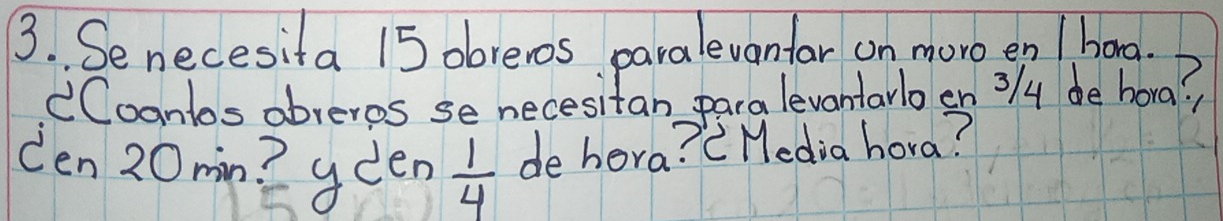 3. Se necesita 15 obreros para levantar un moro en 1 hora.
¿Coantos obreros se necesitan para levantarlo en 3/4 de hora?,
¿en 20 min? y ¿en 1/4 de hora? ¿Media hora?